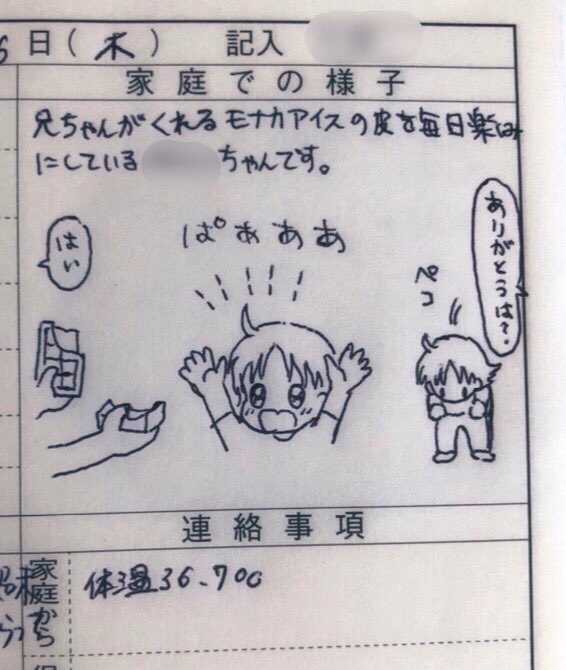 日(木) 記入
家庭での様子
兄ちゃんがくれるモナカアイスの皮を毎日楽しみ
にしている ちゃんです。
はい
ぱぁぁぁ
ペコ
ありがとうは?。
連絡事項
家庭から
体温36.7℃